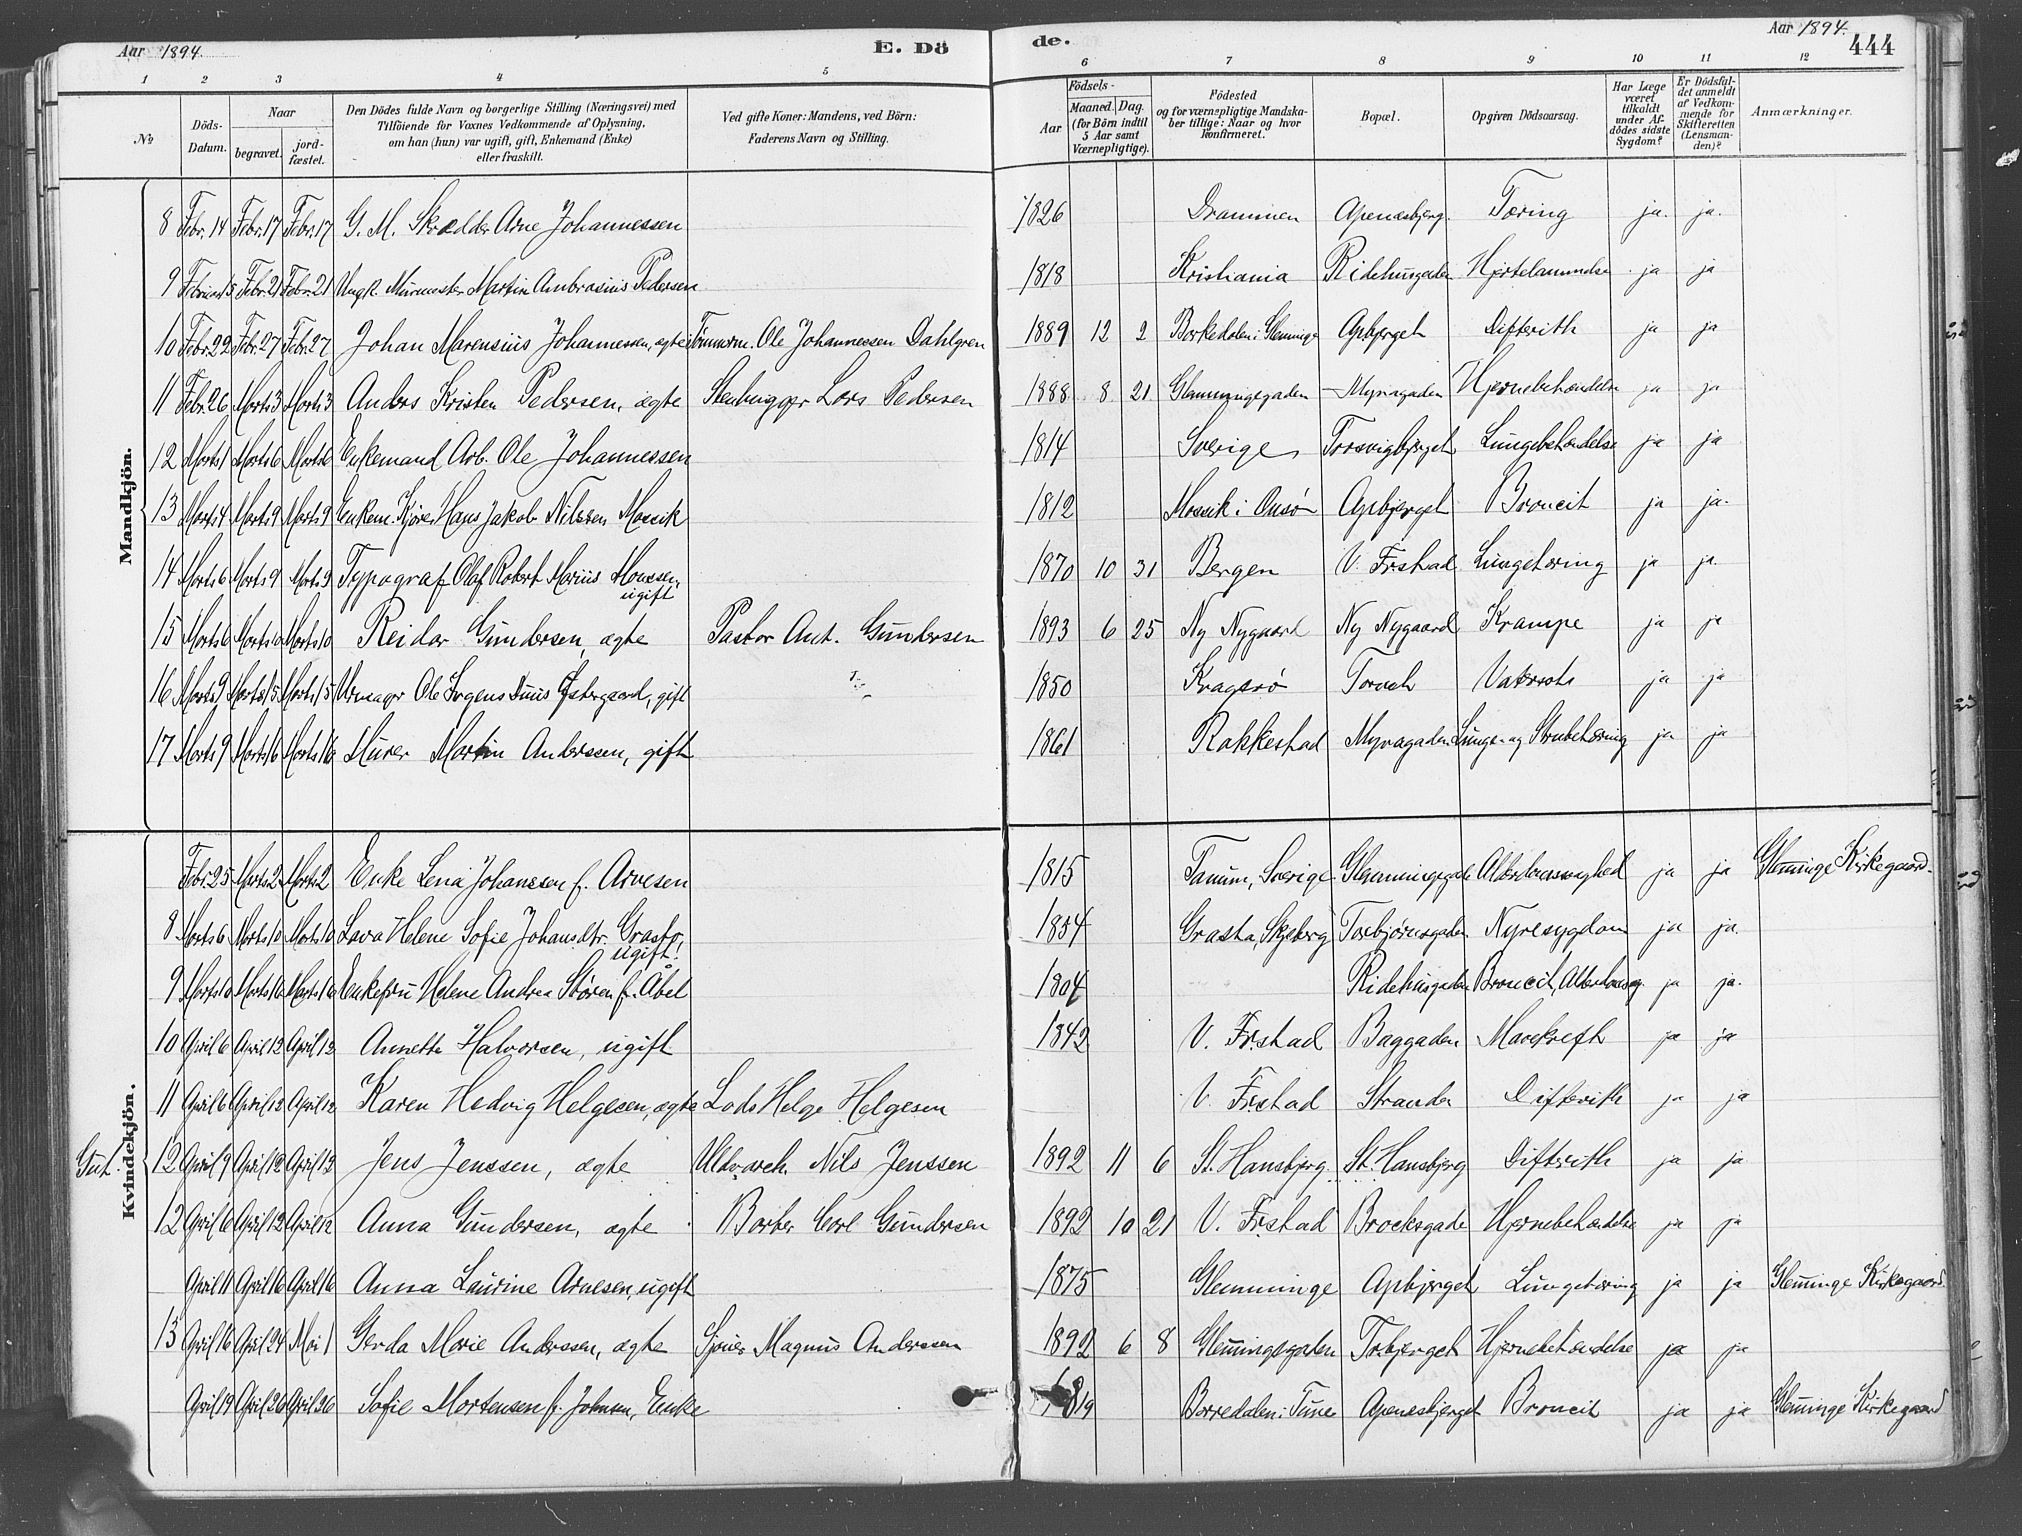 Aar 1894.
E. Dö
de.
Aar 1894.
444
1 2 3 4 5 6 7 8 9 10 11 12
No
Döds-Datum.
Naar
begravet.
jord-fæstet.
Den Dödes fulde Navn og borgerlige Stilling (Næringsvei) med
Tilföiende for Voxnes Vedkommende af Oplysning,
om han (hun) var ugift, gift, Enkemand (Enke)
eller fraskilt.
Ved gifte Koner: Mandens, ved Börn:
Faderens Navn og Stilling.
Födsels-
Aar
Maaned. Dag.
(for Börn indtil
5 Aar samt
Værnepligtige).
Födested
og for værnepligtige Mandska-
ber tillige: Naar og hvor
konfirmeret.
Bopæl.
Opgiven Dödsaarsag.
Har Læge
været
tilkaldt
under Af-
dödes sidste
Sygdom?
Er Dödsfal-
det anmeldt
af Vedkom-
mende for
Skifteretten
(Lensman-
den)?
Anmærkninger.
Mandkjön.
8 Febr. 14 Febr. 17 Febr. 17 G. M. Skrædder Arne Johannessen 1826 Drammen Apenæsbjerg. Tæring ja. ja.
9 Februar 15 Febr. 21 Febr. 21 Ungk. Murmester Martin Ambrosius Pedersen 1818 Kristiania Ridehusgaden ja ja
10 Febr. 22 Febr. 27 Febr. 27 Johan Marensius Johannessen, ægte Tømmerm. Ole Johannessen Dahlgren 1889 12 2 Borkedalen i Glemminge Apbjerget Difterith ja ja
11 Febr. 26 Marts 3 Marts 3 Anders Kristen Pedersen, ægte Stenhugger Lars Pedersen 1888 8 21 Glemmingegaden Myragaden Hjernebetændelse ja ja
12 Marts 1 Marts 6 Marts 6 Enkemand Arb. Ole Johannessen 1814 Sverige Trosvigbjerget Lungebetændelse ja ja
13 Marts 4 Marts 9 Marts 9 Enkem. Hans Jakob Nilssen Mossik 1812 Mossik i Onsø Apbjerget Broncit ja ja.
14 Marts 6 Marts 9 Marts 9 Typograf Olaf Robert Marius Monssen, ugift 1870 10 31 Bergen V. Fr.stad Lungetæring ja ja
15 Marts 6 Marts 10 Marts 10 Reidar Gundersen, ægte Pastor Ant. Gundersen 1893 6 25 Ny Nygaard Ny Nygaard Krampe ja ja
16 Marts 9 Marts 15 Marts 15 Urmager Ole Jørgens Duus Østergaard, gift 1850 Kragerø Torvet Vatersot ja ja
17 Marts 9 Marts 16 Marts 16 Murer Martin Anderssen, gift 1861 Rakkestad Myragaden Lunge- og Strubetæring ja ja
Kvindekjön.
Febr. 25 Marts 2 Marts 2 Enke Lena Johanssen f. Arvesen 1815 Tanum, Sverige Glemmingegade Alderdomssvaghed ja ja Glemminge Kirkegaard.
8 Marts 6 Marts 10 Marts 10 Lava Helene Sofie Johansdtr. Grasta, ugift. 1834 Grasta, Skjeberg Torbjørnsgaden Nyresygdom ja ja.
9 Marts 10 Marts 16 Marts 16 Enkefru Helene Andrea Støren f. Åbel 1804 Ridehusgaden Broncit, ja ja.
10 April 6 April 12 April 12 Annette Halvorsen, ugift 1842 V. Fr.stad Baggaden Mavekreft ja ja
11 April 6 April 12 April 12 Karen Hedvig Helgesen, ægte Lods Helge Helgesen V. Fr.stad Stranden Difterith ja ja
Gut. 12 April 9 April 12 April 12 Jens Jenssen, ægte Nils Jenssen 1892 11 6 St. Hansbjerg St. Hansbjerg Difterith ja ja
12 April 6 April 12 April 12 Anna Gundersen, ægte Barber Carl Gundersen 1892 10 21 V. Fr.stad Brocksgade Hjernebetændelse ja ja
April 11 April 16 April 16 Anna Laurine Arnesen, ugift 1875 Glemminge Apbjerget Lungetæring ja ja Glemminge Kirkegaard.
13 April 16 April 24 Mai 1 Gerda Marie Anderssen, ægte Sjøuer Magnus Anderssen 1892 6 8 Glemmingegaden Hjernebetændelse ja ja
April 19 April 26 April 26 Sofie Mortensen f. Johnsen, Enke 1819 Borredalen i Tune Apenesbjerget Broncit ja ja Glemminge Kirkegaard